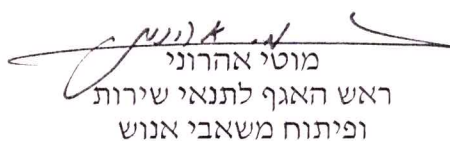 מ. אהרוני
מוטי אהרוני
ראש האגף לתנאי שירות
ופיתוח משאבי אנוש